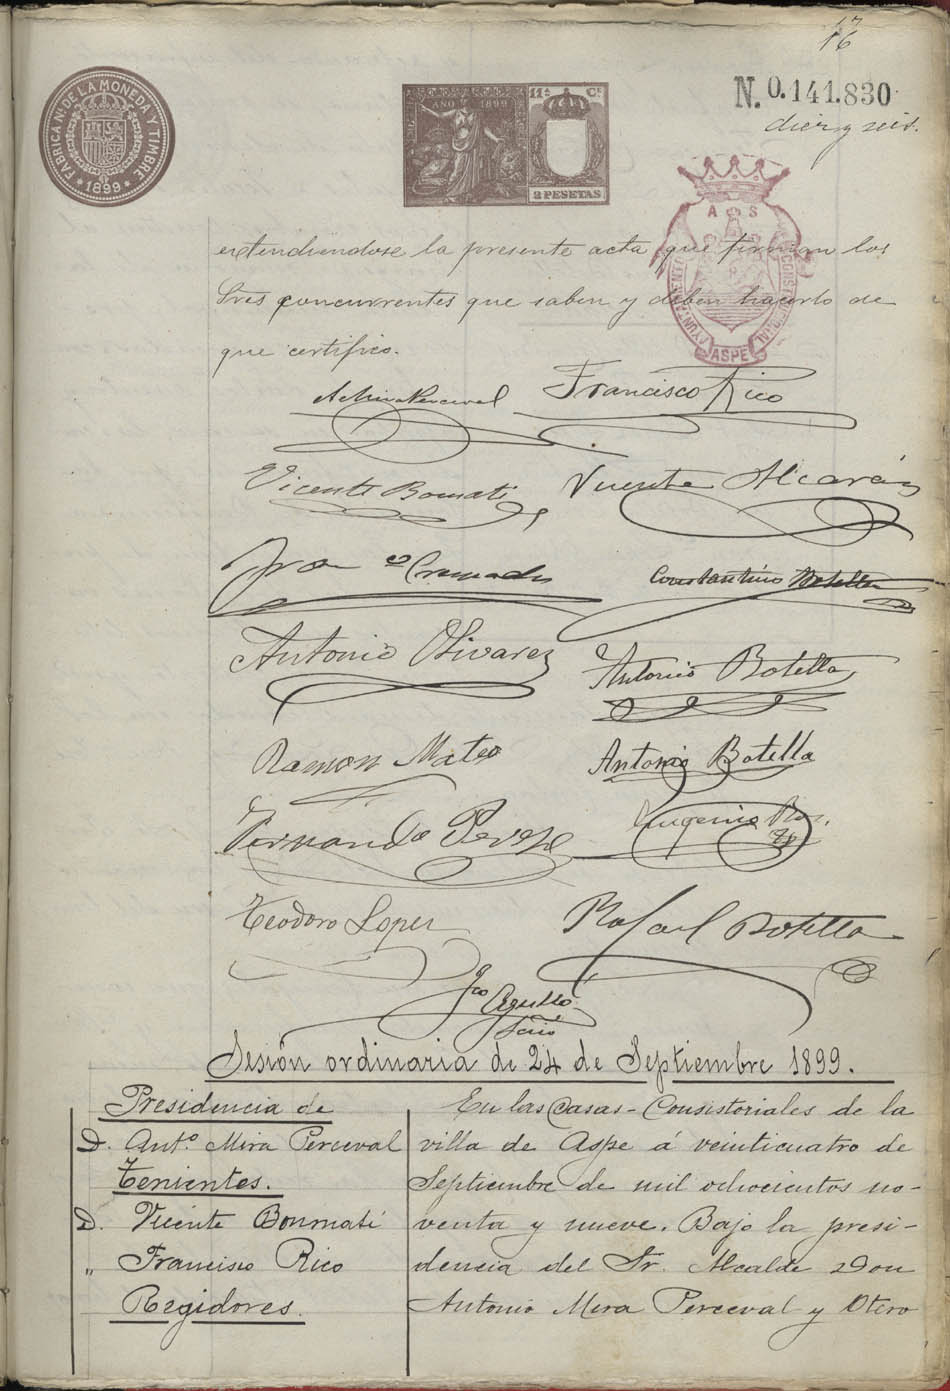 17
16
FABRICA NAL. DE LA MONEDA Y TIMBRE
* 1899 *
AÑO 1899
11ª Cª
2 PESETAS
N. 0.141.830
diez y seis.
A S
AYUNTAMIENTO CONSTITUCIONAL
ASPE
extendiendose la presente acta que firman los
Sres concurrentes que saben y deben hacerlo de
que certifico.
A Mira Perceval Francisco Rico
Vicente Bomati Vicente Alcaráz
Franco Cremades Constantino Botella
Antonio Olivarez Antonio Botella
Ramon Mateo Antonio Botella
Fernando Perez Eugenio
Teodoro Lopez Rafael Botella
Fco Agullo
Srio
Sesión ordinaria de 24 de Septiembre 1899.
Presidencia de
D. Antº Mira Perceval
Tenientes.
D. Vicente Bonmati
" Francisco Rico
Regidores.
En las Casas-Consistoriales de la
villa de Aspe á veinticuatro de
Septiembre de mil ochocientos no-
venta y nueve. Bajo la presi-
dencia del Sr. Alcalde Don
Antonio Mira Perceval y Otero